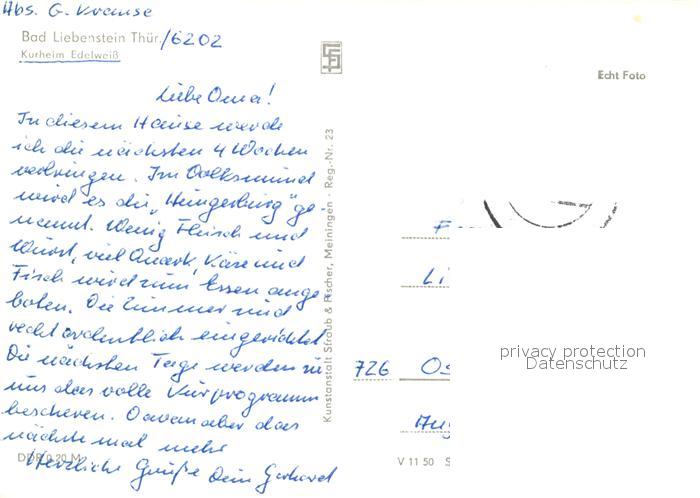 Abs. G. Krause
Bad Liebenstein Thür./6202
Kurheim Edelweiß
Echt Foto
Liebe Oma!
In diesem Hause werde
ich die nächsten 4 Wochen
verbringen. Im Volksmund
wird es die „Hungerburg" ge-
nannt. Wenig Fleisch und
Wurst, viel Quark, Käse und
Fisch wird zum Essen ange
boten. Die Zimmer sind
recht ordentlich eingerichtet.
Die nächsten Tage werden
uns das volle Kurprogramm
bescheren. Davon aber das
nächste mal mehr
Herzliche Grüße Dein Gerhard
DDR 0,20 M
Kunstanstalt Straub & Fischer, Meiningen · Reg.-Nr. 23
F
Li
726 Os
Aug
V 11 50 S
privacy protection
Datenschutz